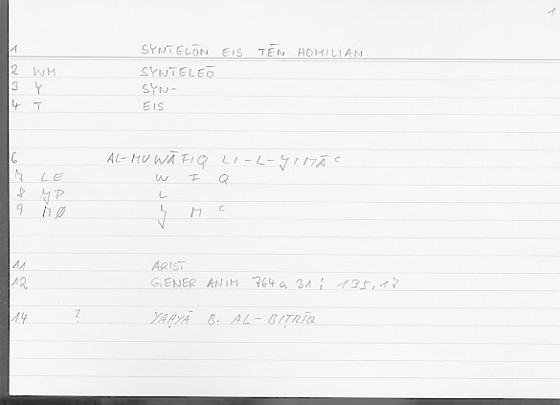 1
1 SYNTELŌN EIS TĒN HOMILIAN
2 WM SYNTELEŌ
3 Y SYN-
4 T EIS
6 AL-MUWĀFIQ LI-L-ǦIMĀʿ
7 LE W F Q
8 JP L
9 MØ Ǧ M ʿ
11 ARIST
12 GENER ANIM 764a 31; 135,17
14 ? YAḤYĀ B. AL-BIṬRĪQ